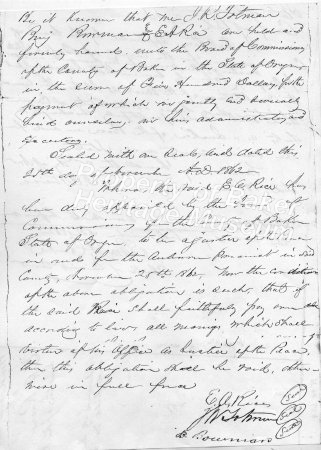 Be it known that we J W Totman
Benj Bowman & E A Rice are held and
firmly bound unto the Board of Commissioners
of the County of Baker in the State of Oregon
in the sum of Five Hundred Dollars for the
payment of which we jointly and severally
bind ourselves, our heirs, administrators and
executors.
Sealed with our Seals, and dated this
25th day of November A D 1862
Whereas the said E A Rice has
been duly appointed by the
Commissioners of the Baker
State of Oregon, to be a Justice of the Peace
in and for the Auburn Precinct in said
County, November 25th 1862. Now the condition
of the above obligation is such, that if
the said Rice shall faithfully pay over
according to law, all moneys which shall
virtue of his Office as Justice of the Peace,
then this obligation shall be void, other
wise in full force
E A Rice Seal
J W Totman Seal
B Bowman Seal